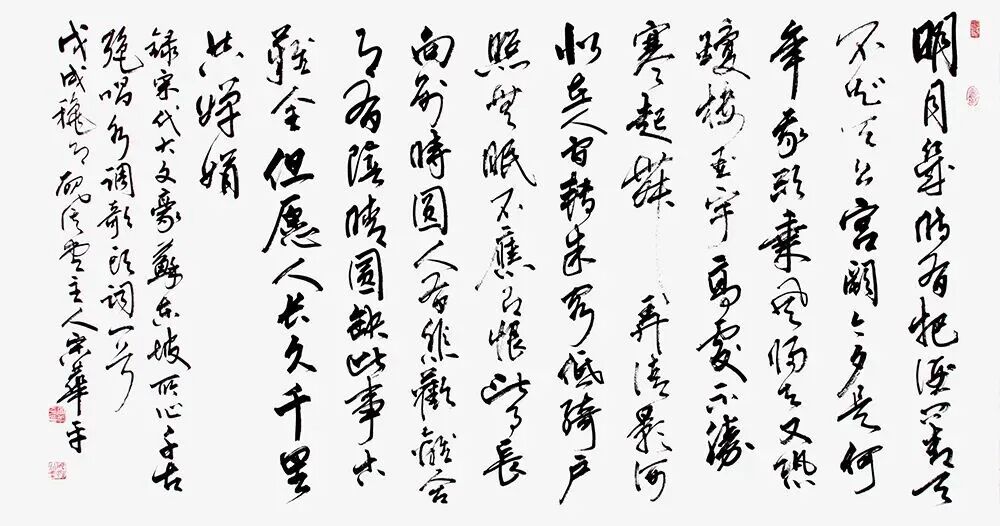 明月幾時有把酒問青天
不知天上宮闕今夕是何
年我欲乘風歸去又恐
瓊樓玉宇高處不勝
寒起舞弄清影何
似在人間轉朱閣低綺戶
照無眠不應有恨何事長
向別時圓人有悲歡離合
月有陰晴圓缺此事古
難全但愿人长久千里
共嬋娟
録宋代大文豪蘇東坡所作千古
絕唱水調歌頭詞一首
戊戌穐月主人宋華平